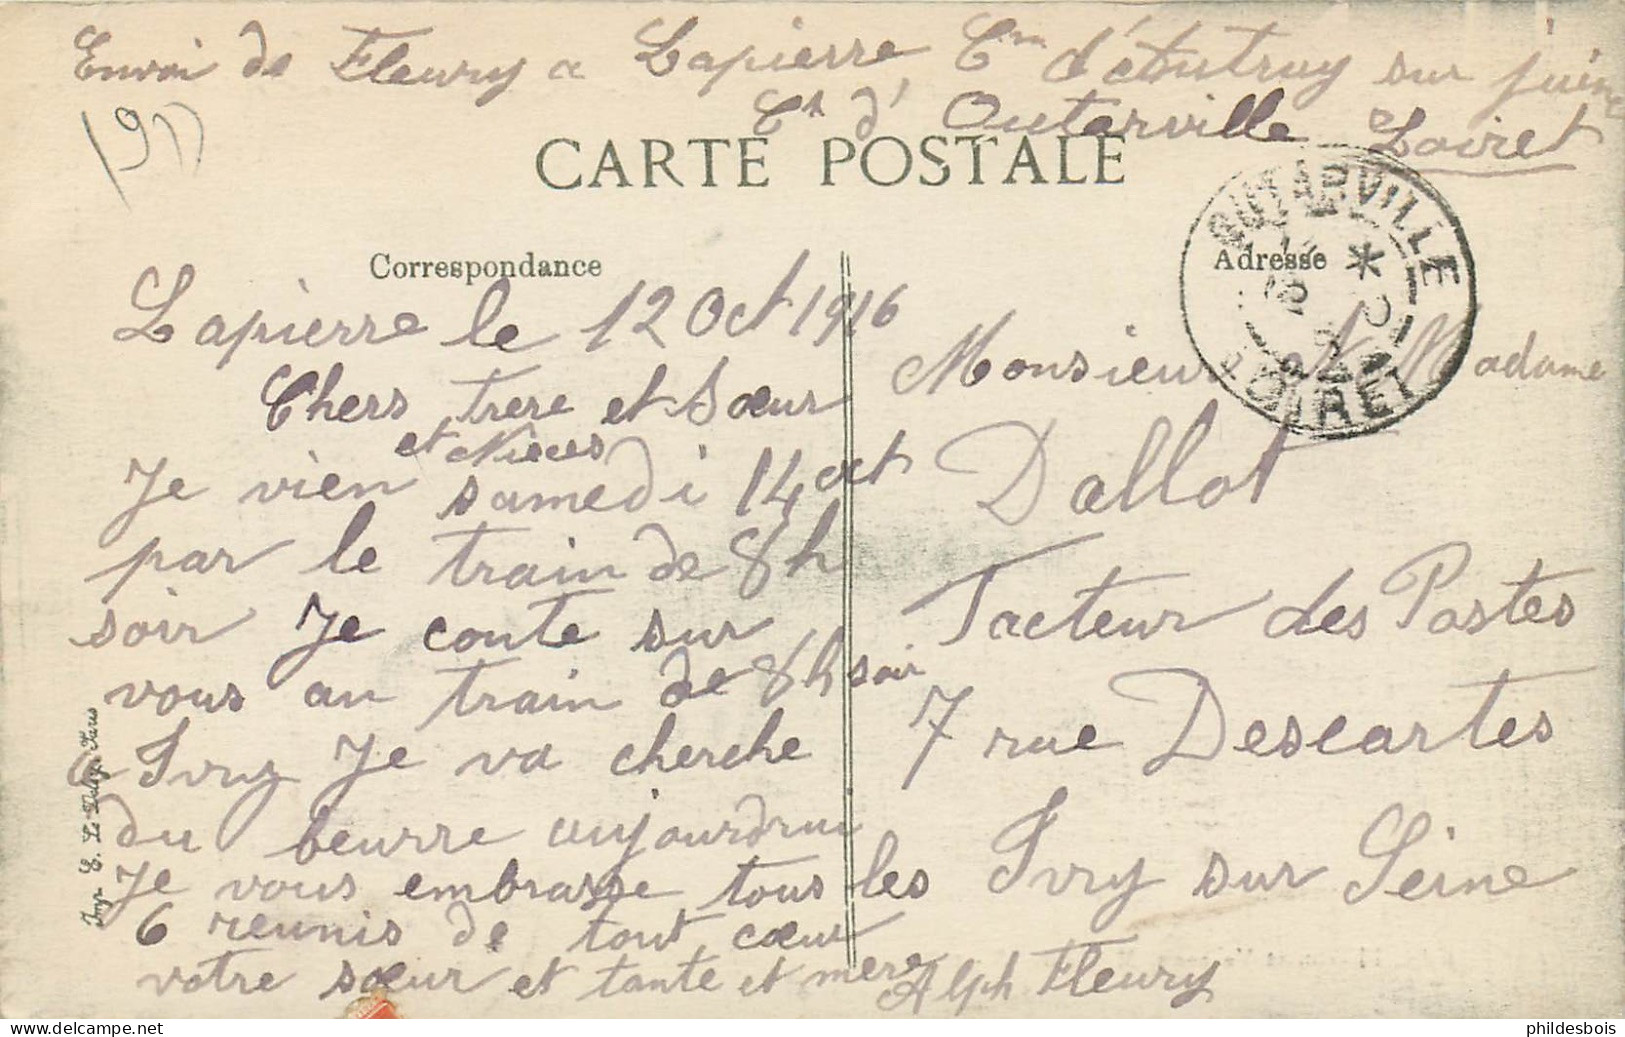 Envoi de Fleury a Lapierre, Cne d'étoutruy sur juine
Ct d'Outarville Loiret
CARTE POSTALE
Correspondance
Adresse
OUTARVILLE
LOIRET
Lapierre le 12 Oct 1916
Chers frere et Sœur
et Nieces
Je vien samedi 14 oct
par le train de 8h
soir Je conte sur
vous au train de 8h soir
a Ivry Je va cherche
du beurre aujourdrui
Je vous embrasse tous les
6 reunis de tout cœur
votre sœur et tante et mere
Alph Fleury
Monsieur et Madame
Dallot
Facteur des Postes
7 rue Descartes
Ivry sur Seine
Imp. E. Le Deley, Paris
phildesbois